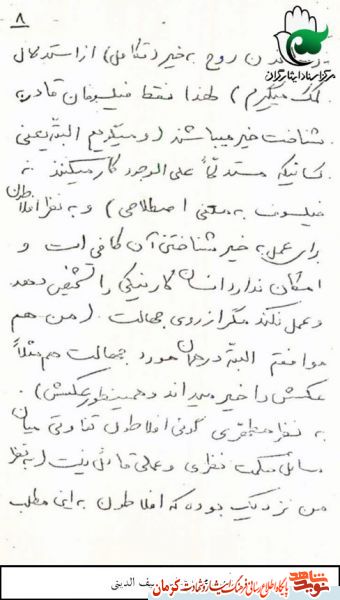 ۸
مرکز اسناد ایثارگران
روح به خیر (تکامل) از استدلال
کمک میگیرم) لهذا فقط فیلسوفان قادر به
شناخت خیر میباشند (و میگویم البته یعنی
کسانیکه مستدلاً علی الوجود کار میکنند نه
فیلسوف به معنی اصطلاحی) و به نظر افلاطون
برای عمل به خیر شناختن آن کافی است و
امکان ندارد انسان کار نیکی را تشخیص دهد
و عمل نکند مگر از روی جهالت (من هم
موافقم البته در همان مورد جهالت هم مثلاً
عکسش را خیر میداند و همینطور عکسش).
به نظر مطهری گوئی افلاطون تفاوتی میان
مسائل حکمت نظری و عملی قائل نیست (به نظر
من نزدیک بوده که افلاطون به این مطلب
یف الدینی
نوید شاهد
پایگاه اطلاع رسانی فرهنگ ایثار و شهادت کرمان